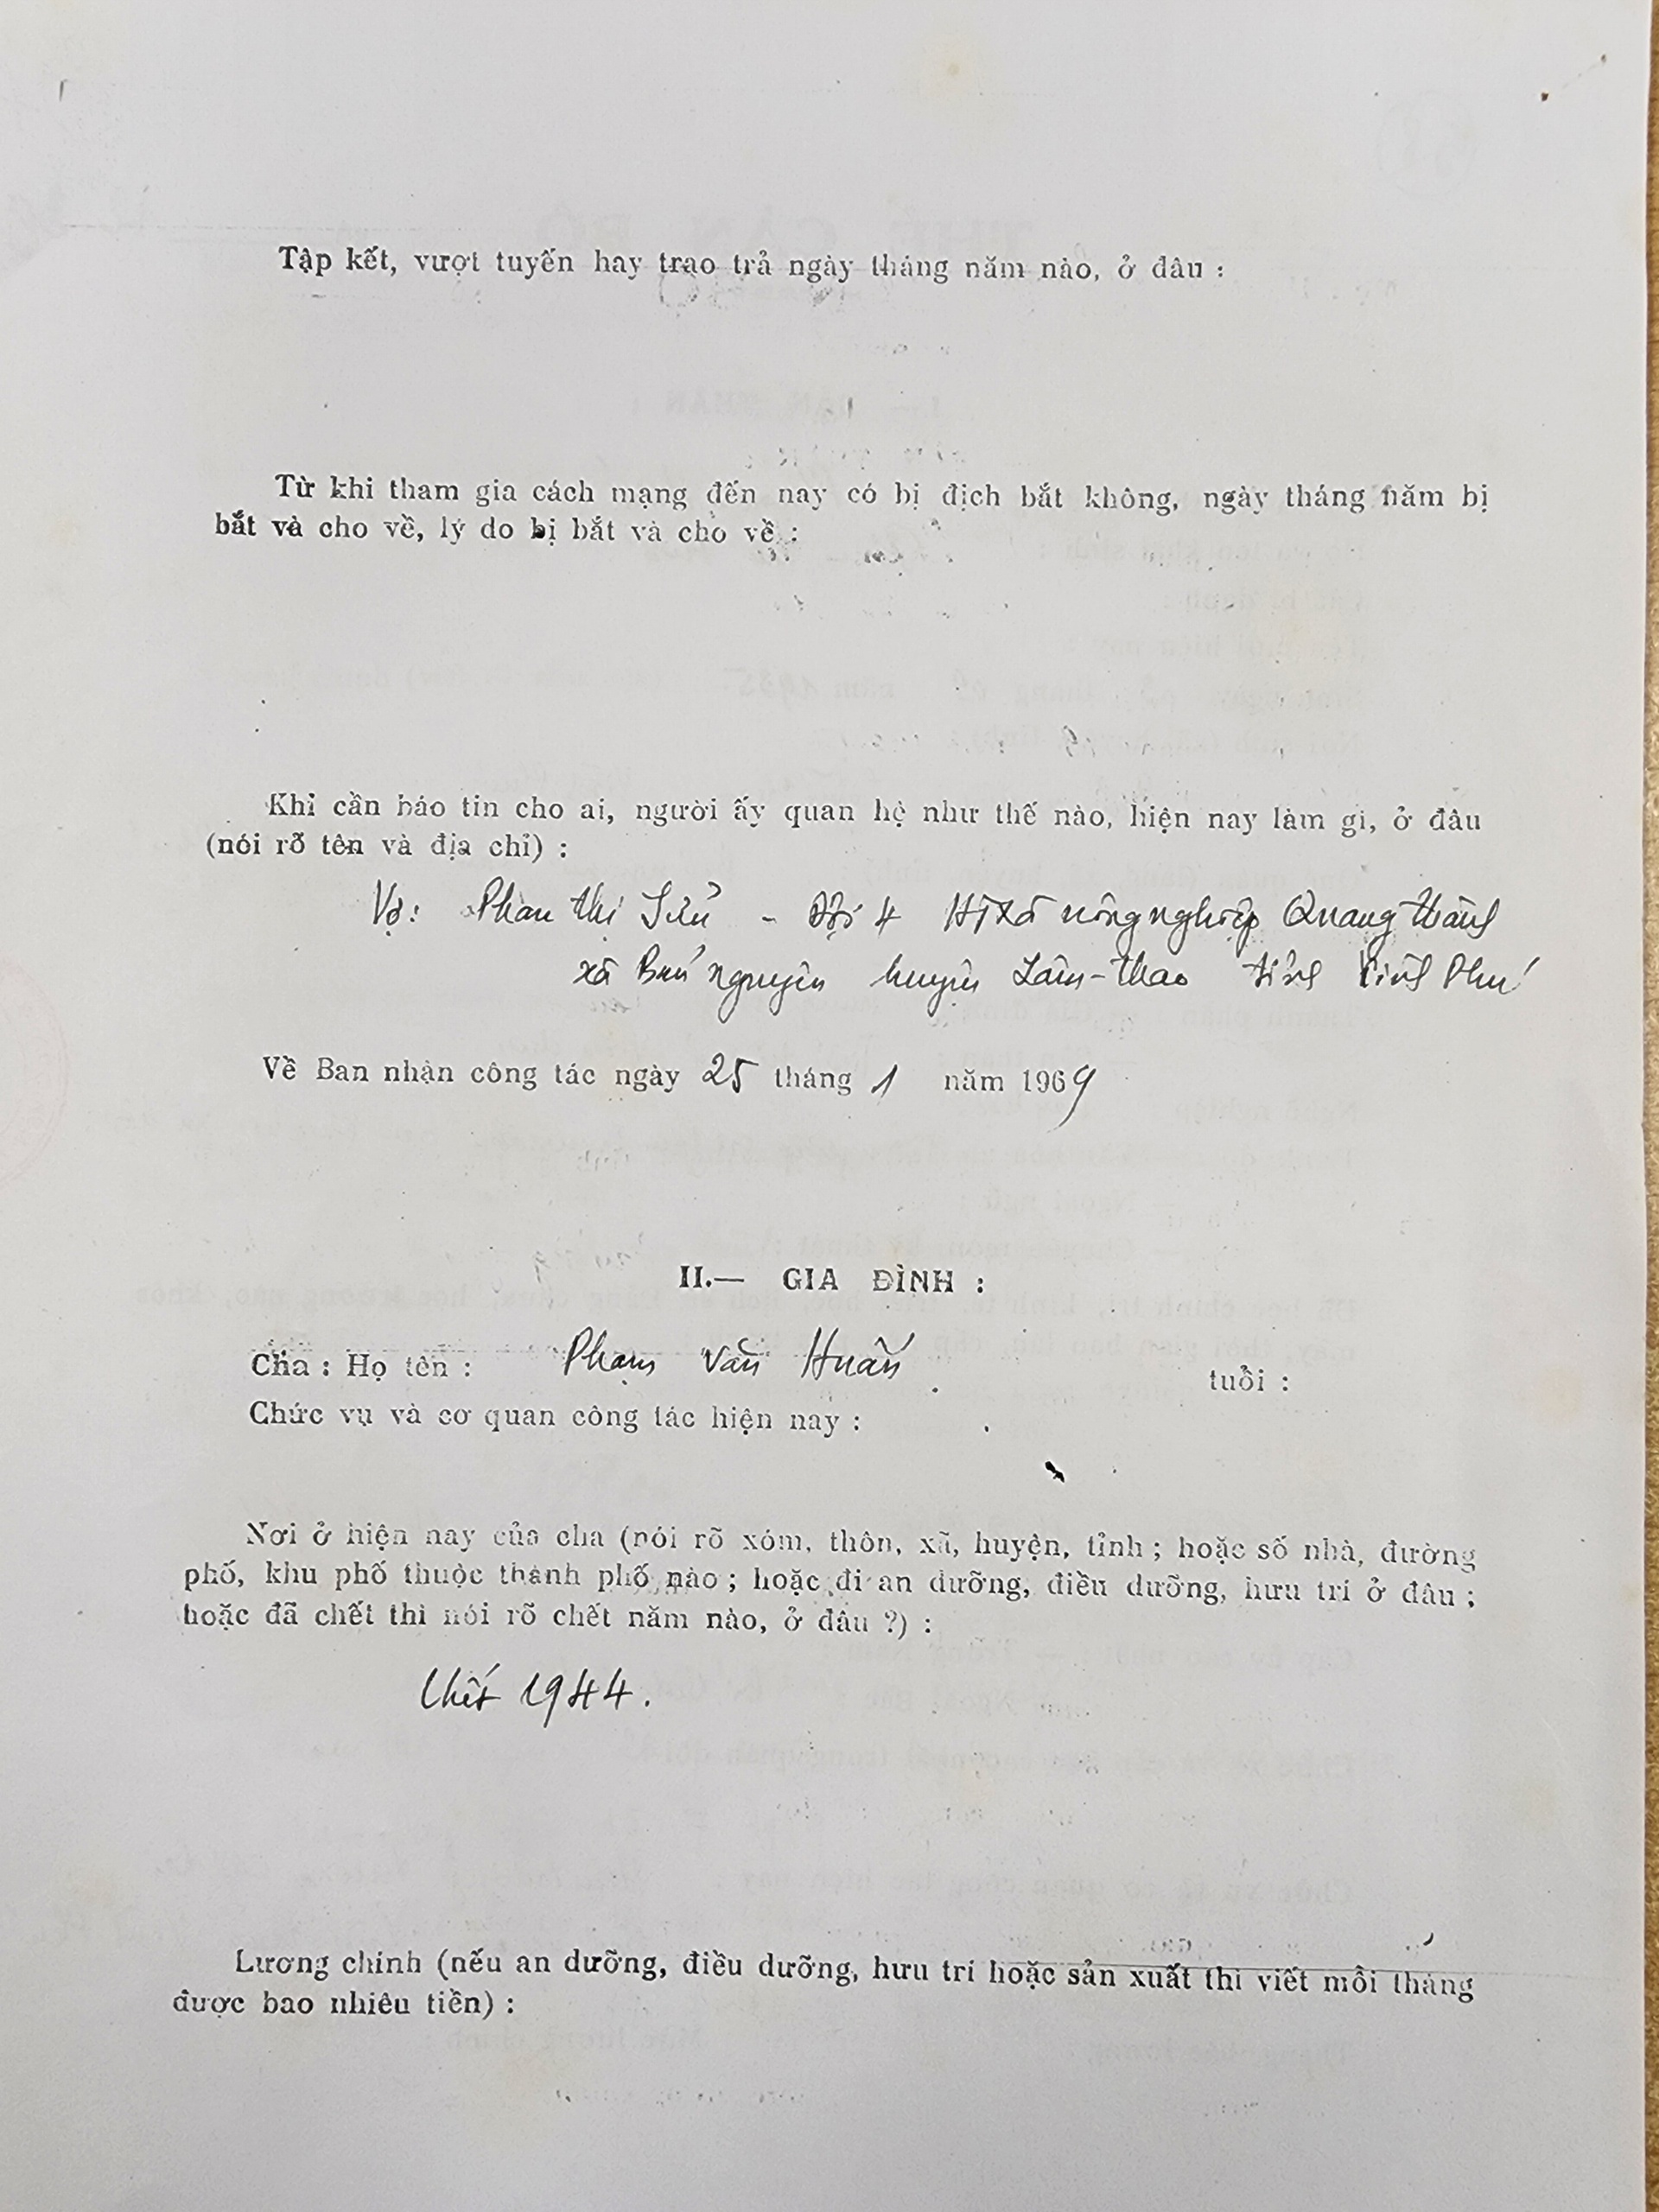 Tập kết, vượt tuyến hay trao trả ngày tháng năm nào, ở đâu :
Từ khi tham gia cách mạng đến nay có bị địch bắt không, ngày tháng năm bị
bắt và cho về, lý do bị bắt và cho về :
Khi cần báo tin cho ai, người ấy quan hệ như thế nào, hiện nay làm gì, ở đâu
(nói rõ tên và địa chỉ) :
Vợ: Phan thị - Đội 4 HTXã nông nghiệp Quang thành
xã Bản nguyên huyện Lâm-thao tỉnh Vĩnh Phú
Về Ban nhận công tác ngày 25 tháng 1 năm 1969
II.— GIA ĐÌNH :
Cha : Họ tên : Phạm Văn Huấn tuổi :
Chức vụ và cơ quan công tác hiện nay :
Nơi ở hiện nay của cha (nói rõ xóm, thôn, xã, huyện, tỉnh ; hoặc số nhà, đường
phố, khu phố thuộc thành phố nào ; hoặc đi an dưỡng, điều dưỡng, hưu trí ở đâu ;
hoặc đã chết thì nói rõ chết năm nào, ở đâu ?) :
Chết 1944.
Lương chính (nếu an dưỡng, điều dưỡng, hưu trí hoặc sản xuất thì viết mỗi tháng
được bao nhiêu tiền) :